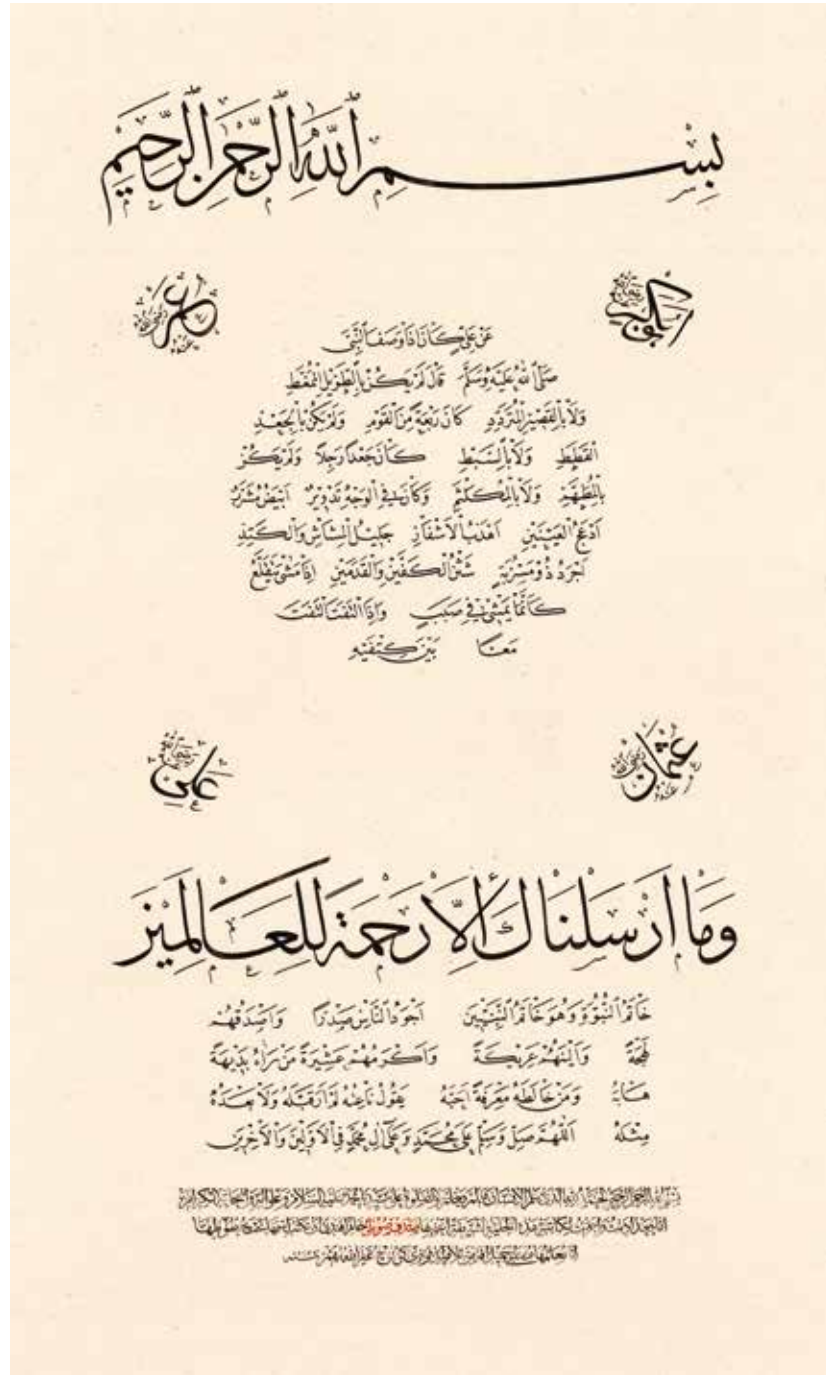 بِسْمِ اللّٰهِ الرَّحْمٰنِ الرَّحِيمِ
ابو بكر رضي الله عنه
عمر رضي الله عنه
عَنْ عَلِيٍّ كَانَ اِذَا وَصَفَ النَّبِيَّ
صَلَّى اللهُ عَلَيْهِ وَسَلَّمَ قَالَ لَمْ يَكُنْ بِالطَّوِيلِ الْمُمَّغِطِ
وَلَا بِالْقَصِيرِ الْمُتَرَدِّدِ كَانَ رَبْعَةً مِنَ الْقَوْمِ وَلَمْ يَكُنْ بِالْجَعْدِ
الْقَطَطِ وَلَا بِالسَّبْطِ كَانَ جَعْدًا رَجِلًا وَلَمْ يَكُنْ
بِالْمُطَهَّمِ وَلَا بِالْمُكَلْثَمِ وَكَانَ فِي الْوَجْهِ تَدْوِيرٌ اَبْيَضُ مُشْرَبٌ
اَدْعَجُ الْعَيْنَيْنِ اَهْدَبُ الْاَشْفَارِ جَلِيلُ الْمُشَاشِ وَالْكَتَدِ
اَجْرَدُ ذُو مَسْرُبَةٍ شَثْنُ الْكَفَّيْنِ وَالْقَدَمَيْنِ اِذَا مَشٰى تَقَلَّعَ
كَاَنَّمَا يَمْشِي فِي صَبَبٍ وَاِذَا الْتَفَتَ الْتَفَتَ
مَعًا بَيْنَ كَتِفَيْهِ
عثمان رضي الله عنه
علي رضي الله عنه
وَمَا اَرْسَلْنَاكَ اِلَّا رَحْمَةً لِلْعَالَمِينَ
خَاتَمُ النُّبُوَّةِ وَهُوَ خَاتَمُ النَّبِيِّينَ اَجْوَدُ النَّاسِ صَدْرًا وَاَصْدَقُهُمْ
لَهْجَةً وَاَلْيَنُهُمْ عَرِيكَةً وَاَكْرَمُهُمْ عَشِيرَةً مَنْ رَاٰهُ بَدِيهَةً
هَابَهُ وَمَنْ خَالَطَهُ مَعْرِفَةً اَحَبَّهُ يَقُولُ نَاعِتُهُ لَمْ اَرَ قَبْلَهُ وَلَا بَعْدَهُ
مِثْلَهُ اَللّٰهُمَّ صَلِّ وَسَلِّمْ عَلٰى مُحَمَّدٍ وَعَلٰى اٰلِ مُحَمَّدٍ فِي الْاَوَّلِينَ وَالْاٰخِرِينَ